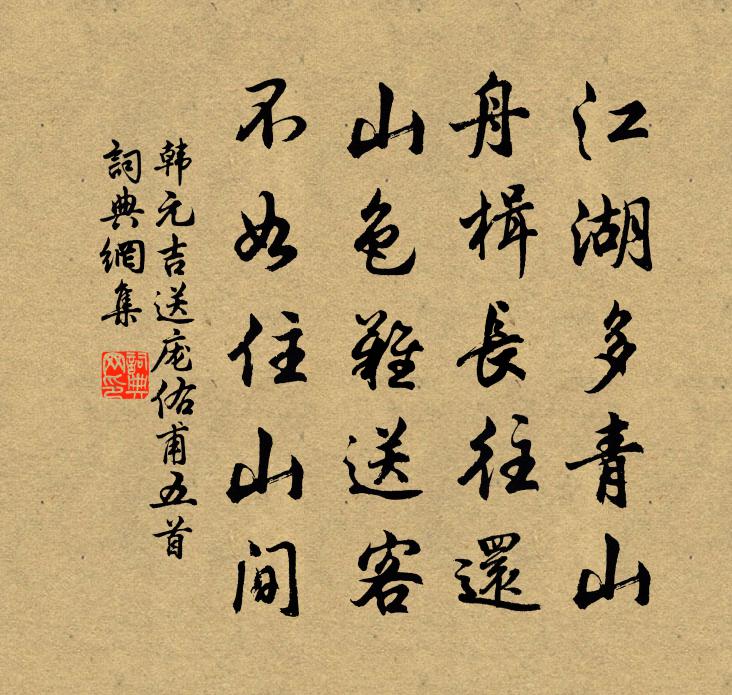 江湖多青山
舟楫長往還
山色難送客
不如住山间
韩元吉送庞佑甫五首
詞典網集
詞典
网印